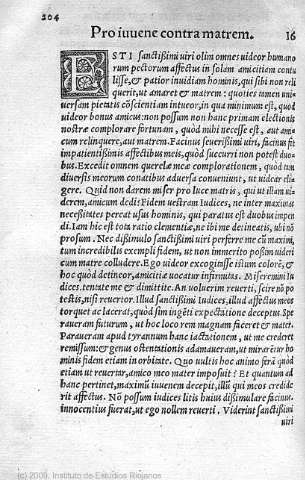 204
Pro iuuene contra matrem. 16
ETSI sanctissimi uiri olim omnes uideor humano
rum pectorum affectus in solam amicitiam contu
lisse, & patior inuidiam hominis, qui sibi non reli
querit, ut amaret & matrem: quoties tamen uni-
uersam pietatis cõscientiam intueor, in qua minimum est, quod
uideor bonus amicus: non possum non hanc primam electionis
nostræ complorare fortunam, quòd mihi necesse est, aut ami
cum relinquere, aut matrem. Facinus seuerissimi uiri, facinus fit
impatientissimis affectibus meis, quòd succurri non potest duo-
bus. Excedit omnem querelæ meæ complorationem, quòd tam
diuersis meorum conatibus aduersa conueniunt, ut uidear eli-
gere. Quid non darem miser pro luce matris, qui ut illam ui-
derem, amicum dedi? Fidem uestram Iudices, ne inter maximas
necessitates percat usus hominis, qui paratus est duobus impen
di. Iam hic est tota ratio clementiæ, ne ibi me delineatis, ubi nõ
prosum. Nec dissimulo sanctissimi uiri perferre me cũ maximi,
tum incredibilis exempli fidem, ut non immerito possim uideri
cum matre colludere. Ego uideor excogitasse istum colorẽ, &
hoc quòd detineor, amicitiæ uocatur infirmitas. Miseremini Iu
dices, tentate me & dimittite. An uoluerim reuerti, scire nõ po
testis, nisi reuertor. Illud sanctissimi Iudices, illud affectus meos
torquet ac lacerat, quòd sim ingẽti expectatione deceptus. Spe
raueram futurum, ut hoc loco rem magnam faceret & mater.
Paraueram apud tyrannum hanc iactationem, ut me crederet
remissum: & genus ostentationis adamaueram, ut miraretur ho
minis fidem etiam in orbitate. Quo uultis hoc animo ferã quòd
etiam ut reuertar, amico meo mater imposuit? Et quantum ad
hanc pertinet, maximũ iuuenem decepit, illũ qui meos credide
rit affectus. Nõ possum iudices litis huius dissimulare facinus.
innocentius fuerat, ut ego nollem reuerti. Viderint sanctissimi
uiri
(c) 2009. Instituto de Estudios Riojanos